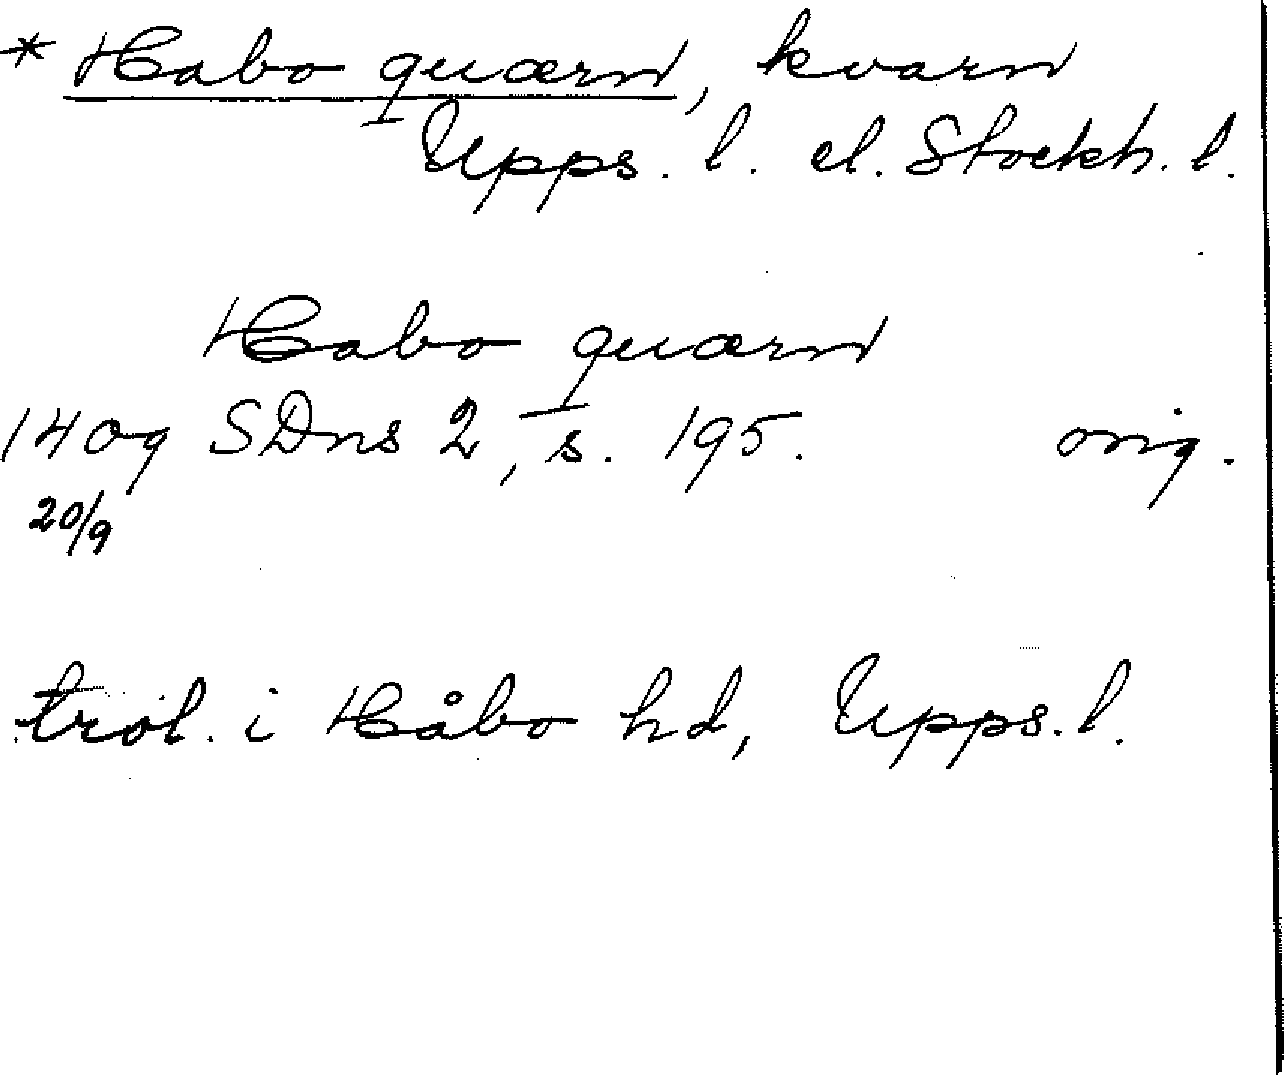 * Habo quærn, kvarn
Upps. l. el. Stockh. l.
Habo quærn
1409 SDns 2, s. 195. orig.
20/9
trol. i Håbo hd, Upps. l.